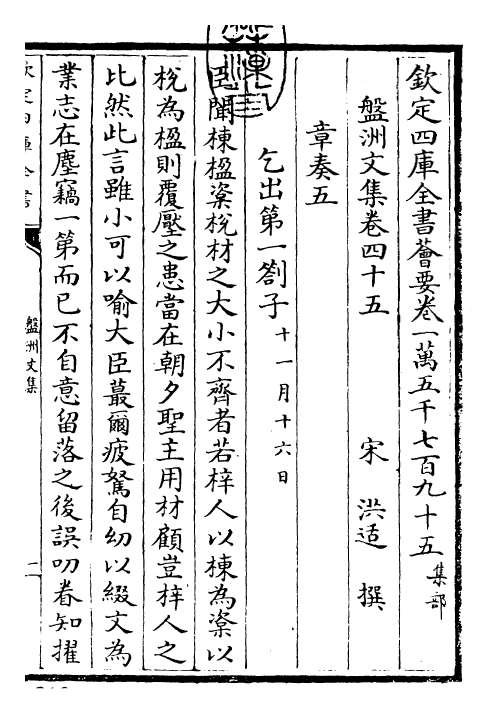 欽定四庫全書薈要卷一萬五千七百九十五集部
盤洲文集卷四十五　宋　洪适　撰
章奏五
乞出第一劄子十一月十六日
臣聞棟楹楶梲材之大小不齊者若梓人以棟為楶以
梲為楹則覆壓之患當在朝夕聖主用材顧豈梓人之
比然此言雖小可以喻大臣蕞爾疲駑自幼以綴文為
業志在塵竊一第而已不自意留落之後誤叨眷知擢
欽定四庫全書
盤洲文集